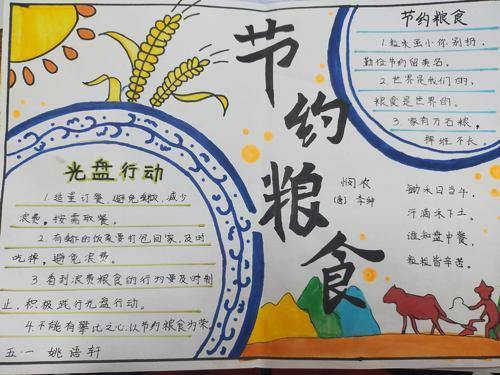 节约粮食
节约粮食
1.粒米虽小你别扔,
勤俭节约留美名。
2.世界是我们的,
粮食是世界的。
3.家有万石粮,
挥班不长
悯农
(唐) 李绅
锄禾日当午,
汗滴禾下土。
谁知盘中餐,
粒粒皆辛苦。
光盘行动
1.适量订餐,避免剩餐,减少
浪费,按需取餐。
2.有剩的饭菜要打包回家,及时
吃掉,避免浪费。
3.看到浪费粮食的行为要及时制
止,积极践行光盘行动。
4.不能有攀比之心,以节约粮食为荣
五·一 姚语轩